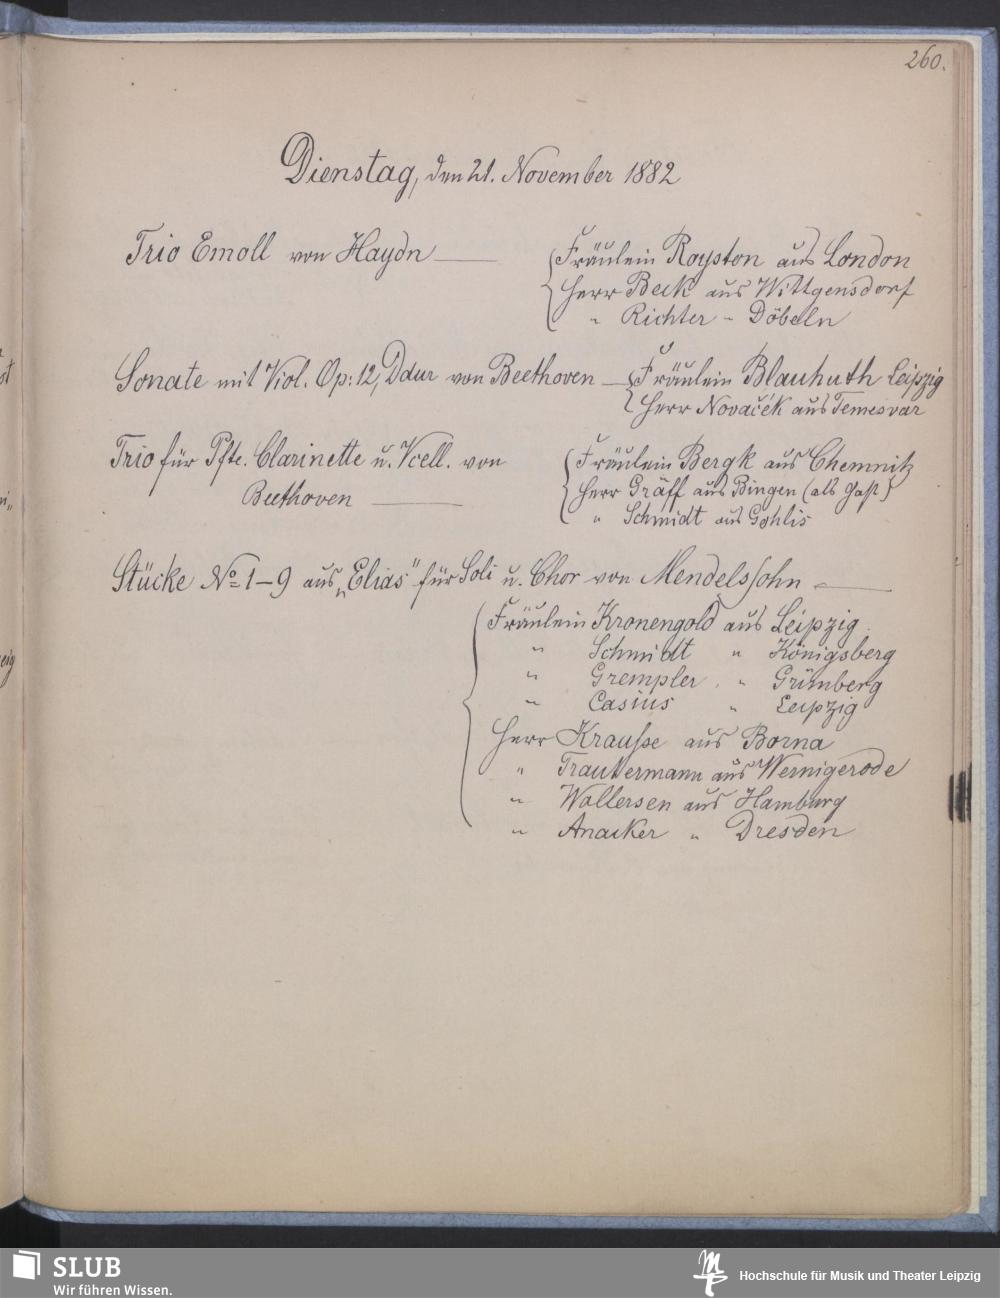 260.
Dienstag, den 21. November 1882
Trio Emoll von Haydn
Fräulein Royston aus London
Herr Beck aus Wittgensdorf
" Richter - Döbeln
Sonate mit Viol. Op: 12, Ddur von Beethoven
Fräulein Blauhuth Leipzig
Herr Nováček aus Temesvar
Trio für Pfte. Clarinette u. Vcell. von
Beethoven
Fräulein Bergk aus Chemnitz
Herr Gräff aus Bingen (als Gast)
" Schmidt aus Gohlis
Stücke No 1-9 aus „Elias" für Soli u. Chor von Mendelssohn
Fräulein Kronengold aus Leipzig.
" Schmidt " Königsberg
" Grempler " Grünberg
" Casius " Leipzig
Herr Krausse aus Borna
" Trautermann aus Wernigerode
" Wollersen aus Hamburg
" Anacker " Dresden
SLUB
Wir führen Wissen.
Hochschule für Musik und Theater Leipzig